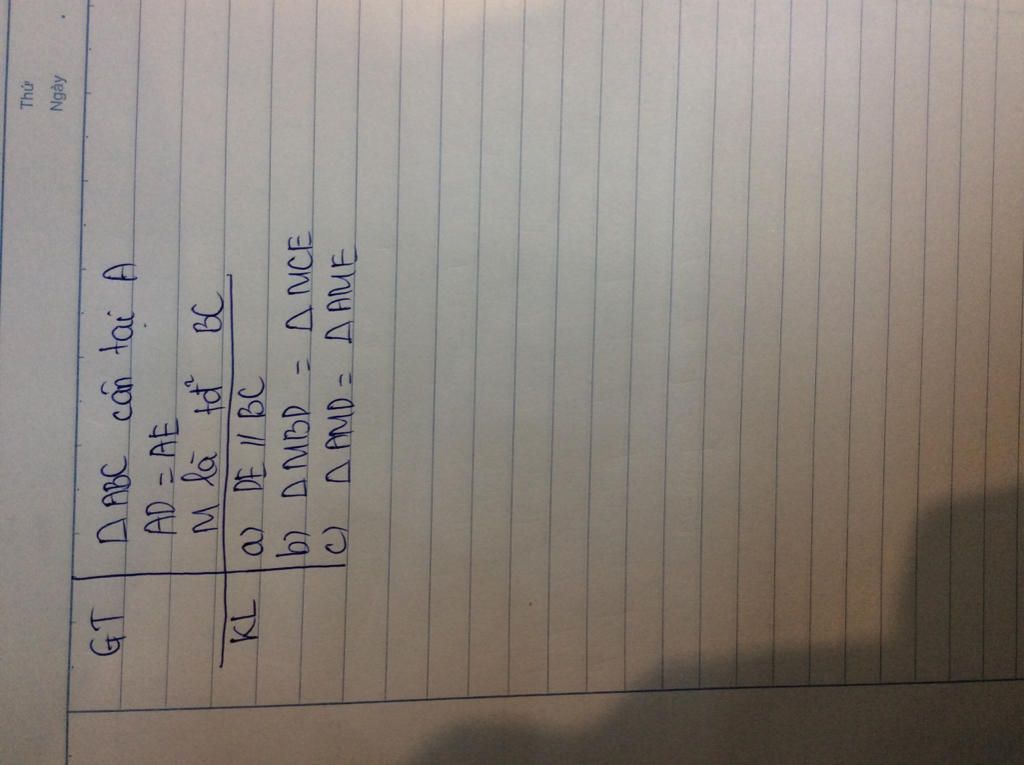 Thứ
Ngày
GT ΔABC cân tại A
AD = AE
M là tđ² BC
KL a) DE // BC
b) ΔMBD = ΔMCE
c) ΔAMD = ΔAME